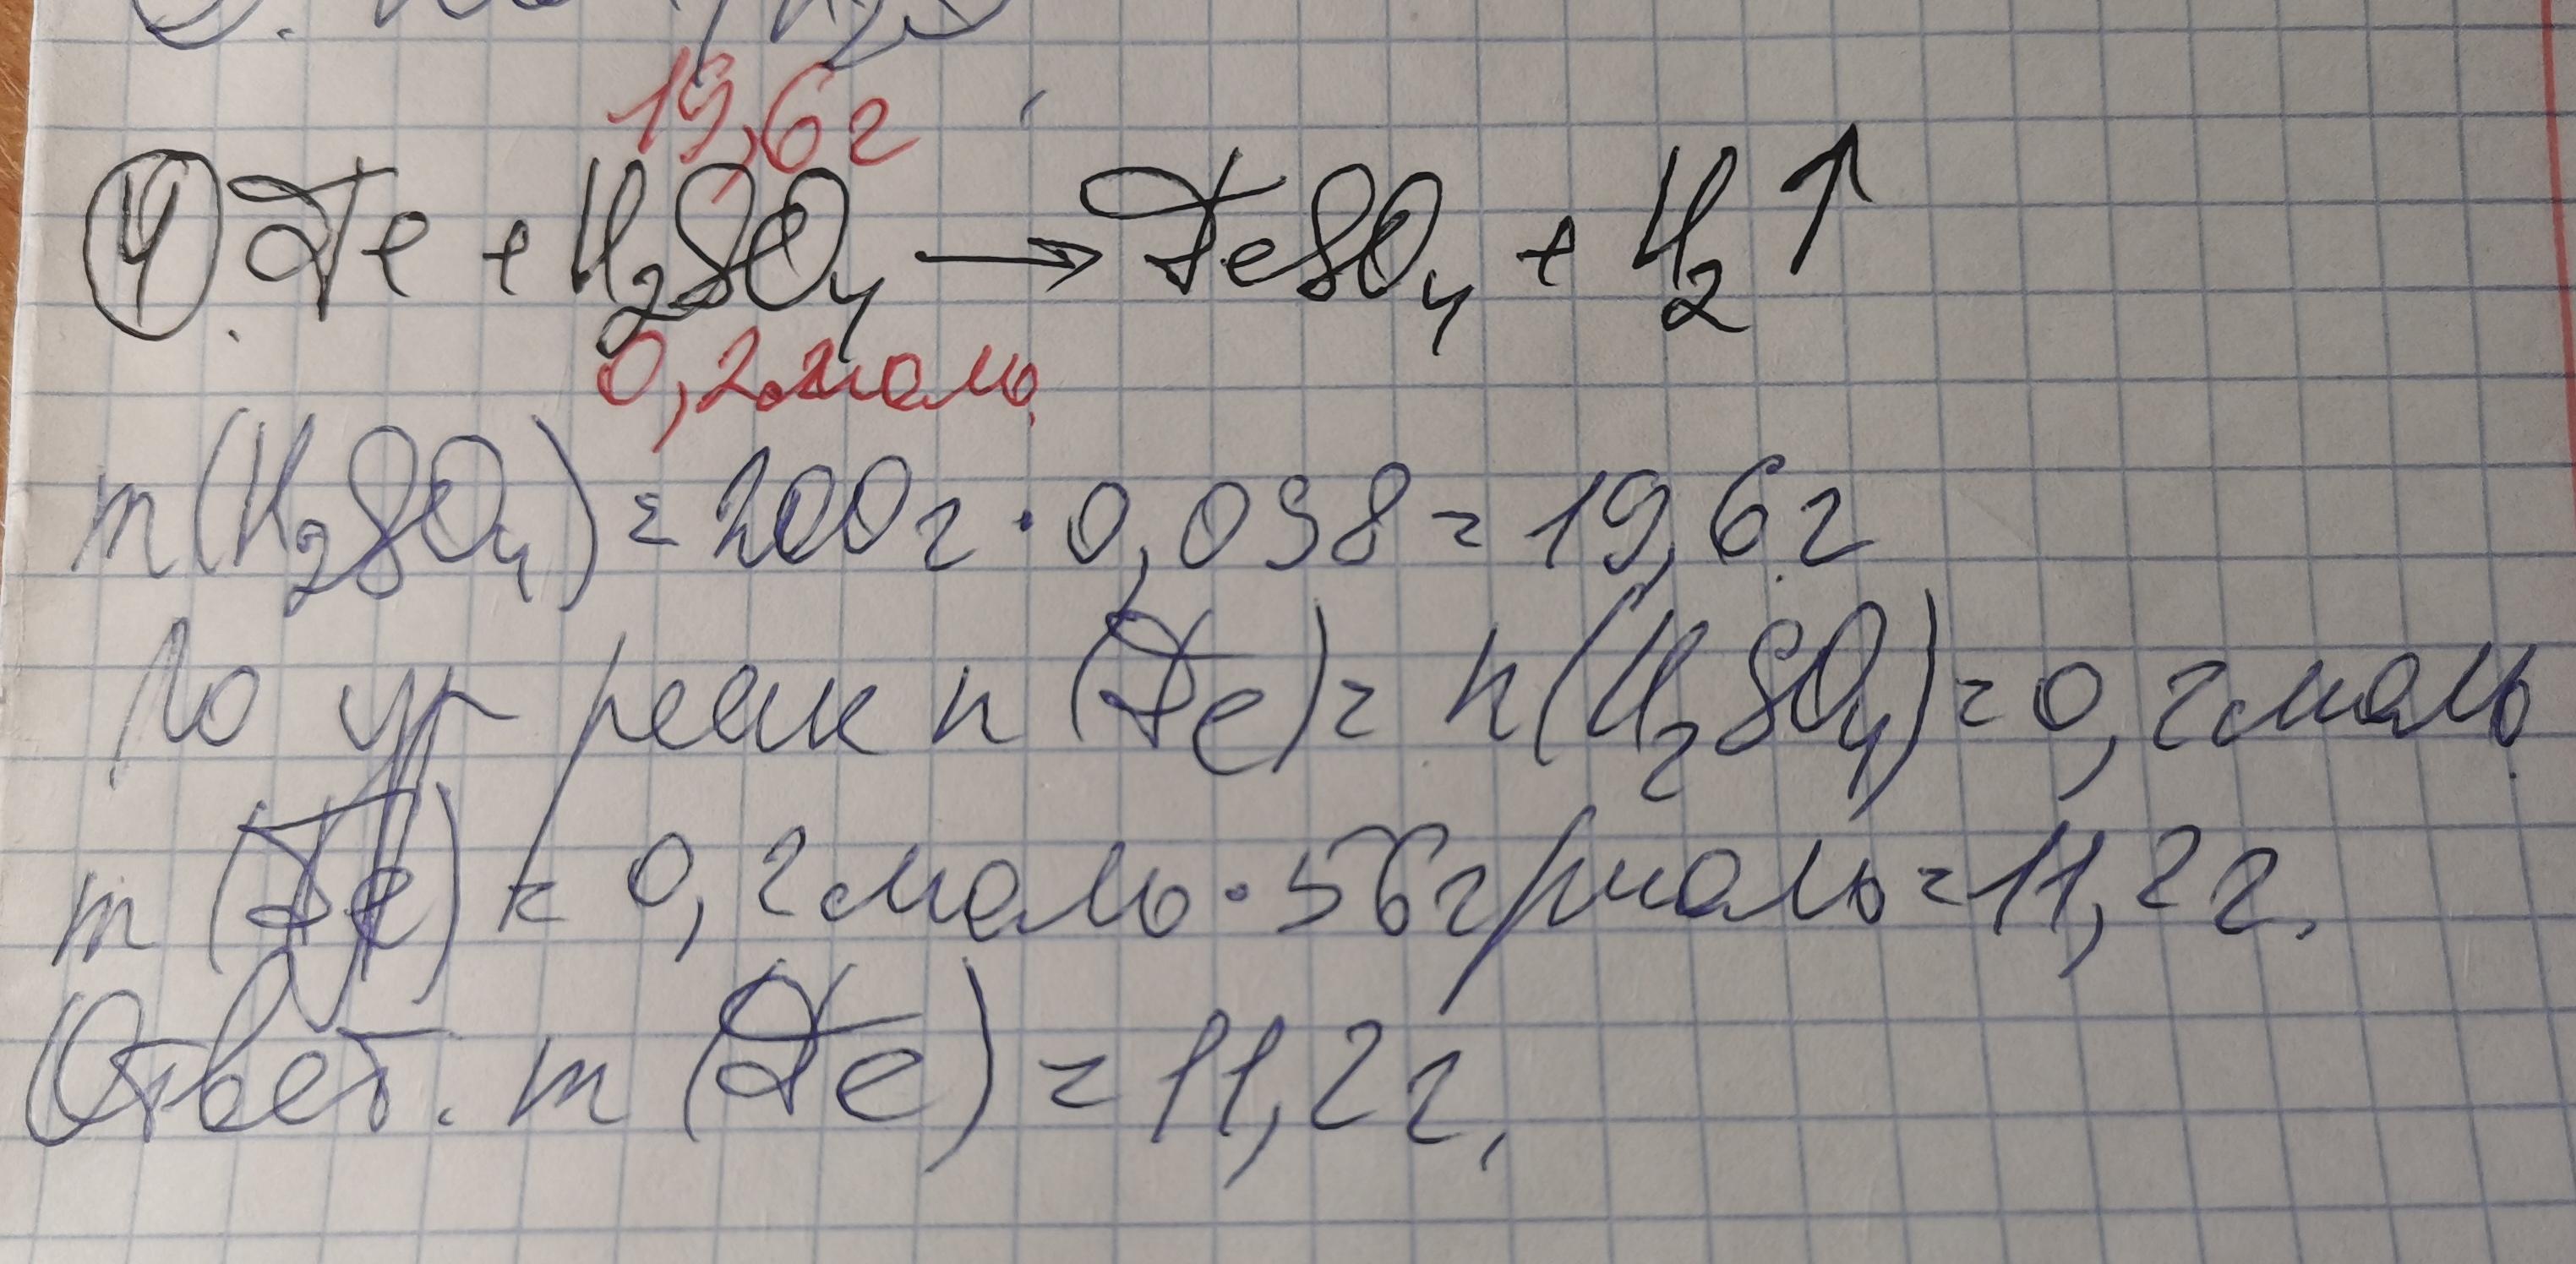 19,6г
4. Fe + H₂SO₄ → FeSO₄ + H₂↑
0,2моль
m(H₂SO₄) = 200г · 0,098 = 19,6г
По ур реак n(Fe) = n(H₂SO₄) = 0,2моль
m(Fe) = 0,2моль · 56г/моль = 11,2г.
Ответ: m(Fe) = 11,2г.